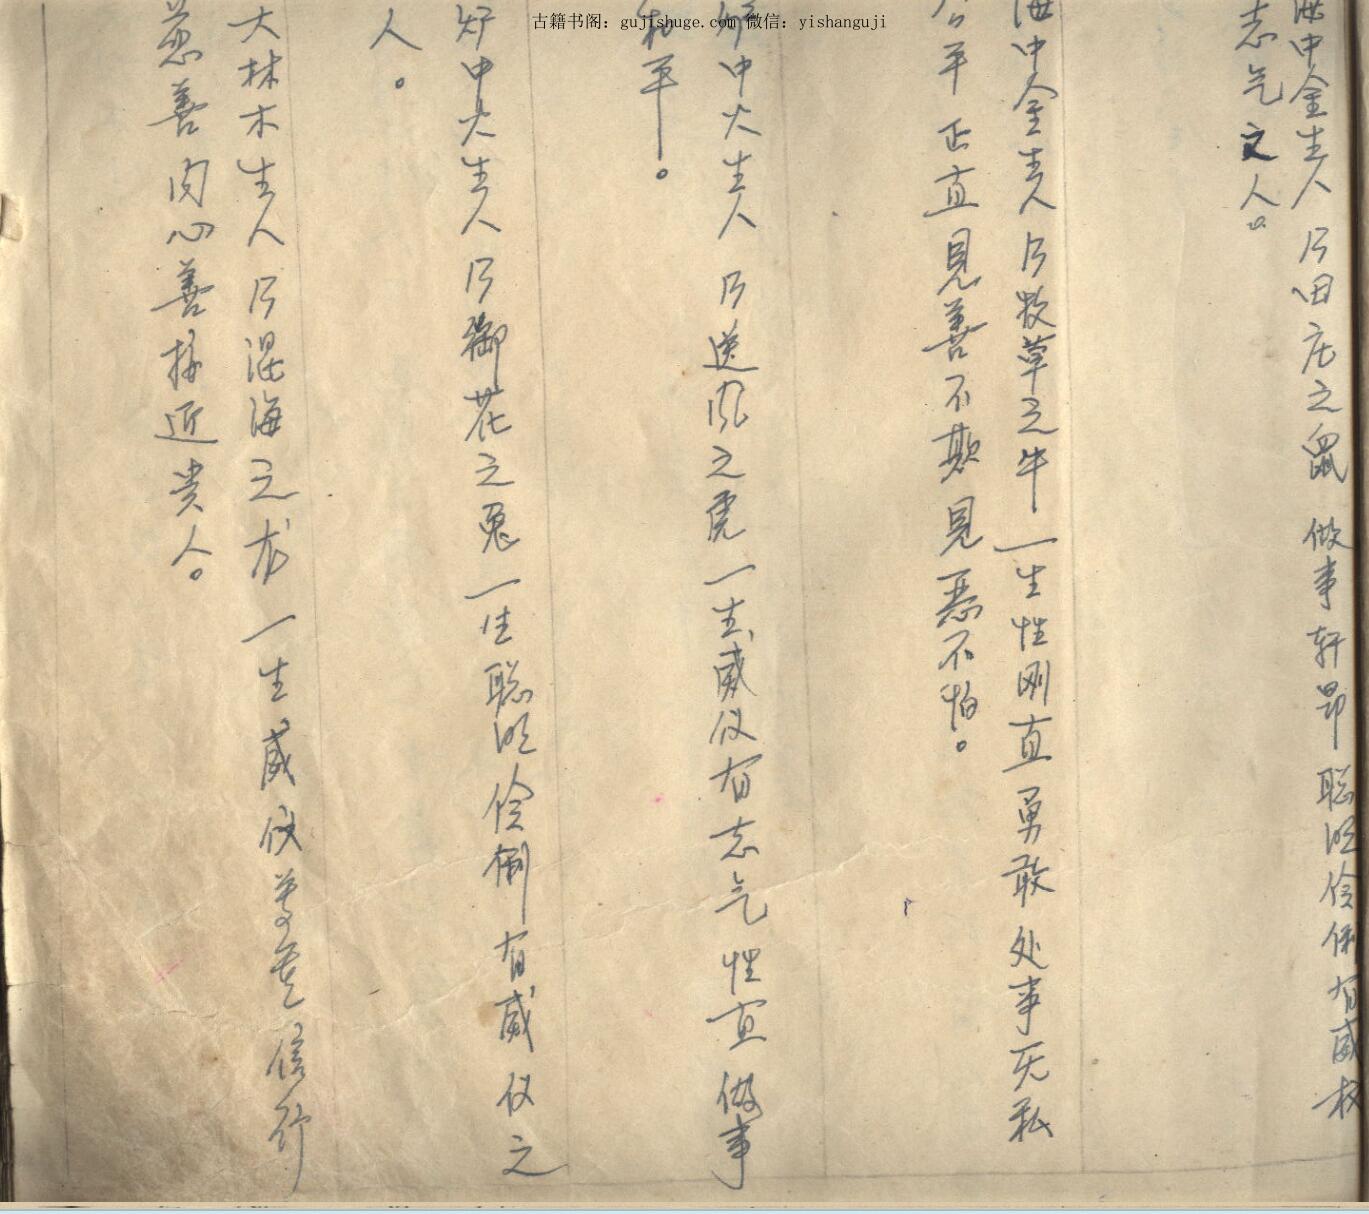 古籍书阁：gujishuge.com 微信：yishanguji
海中金生人 乃田庄之鼠 做事轩昂 聪明伶俐有威权
志气之人。
海中金生人 乃牧草之牛 一生性刚直 勇敢 处事无私
公平 正直 見善不欺 見恶不怕。
炉中火生人 乃送风之虎 一生威仪有志气 性直 做事
和平。
炉中火生人 乃御花之兔 一生聪明 伶俐 有威仪之
人。
大林木生人 乃混海之龙 一生威仪 信行
慈善 内心善 接近贵人。